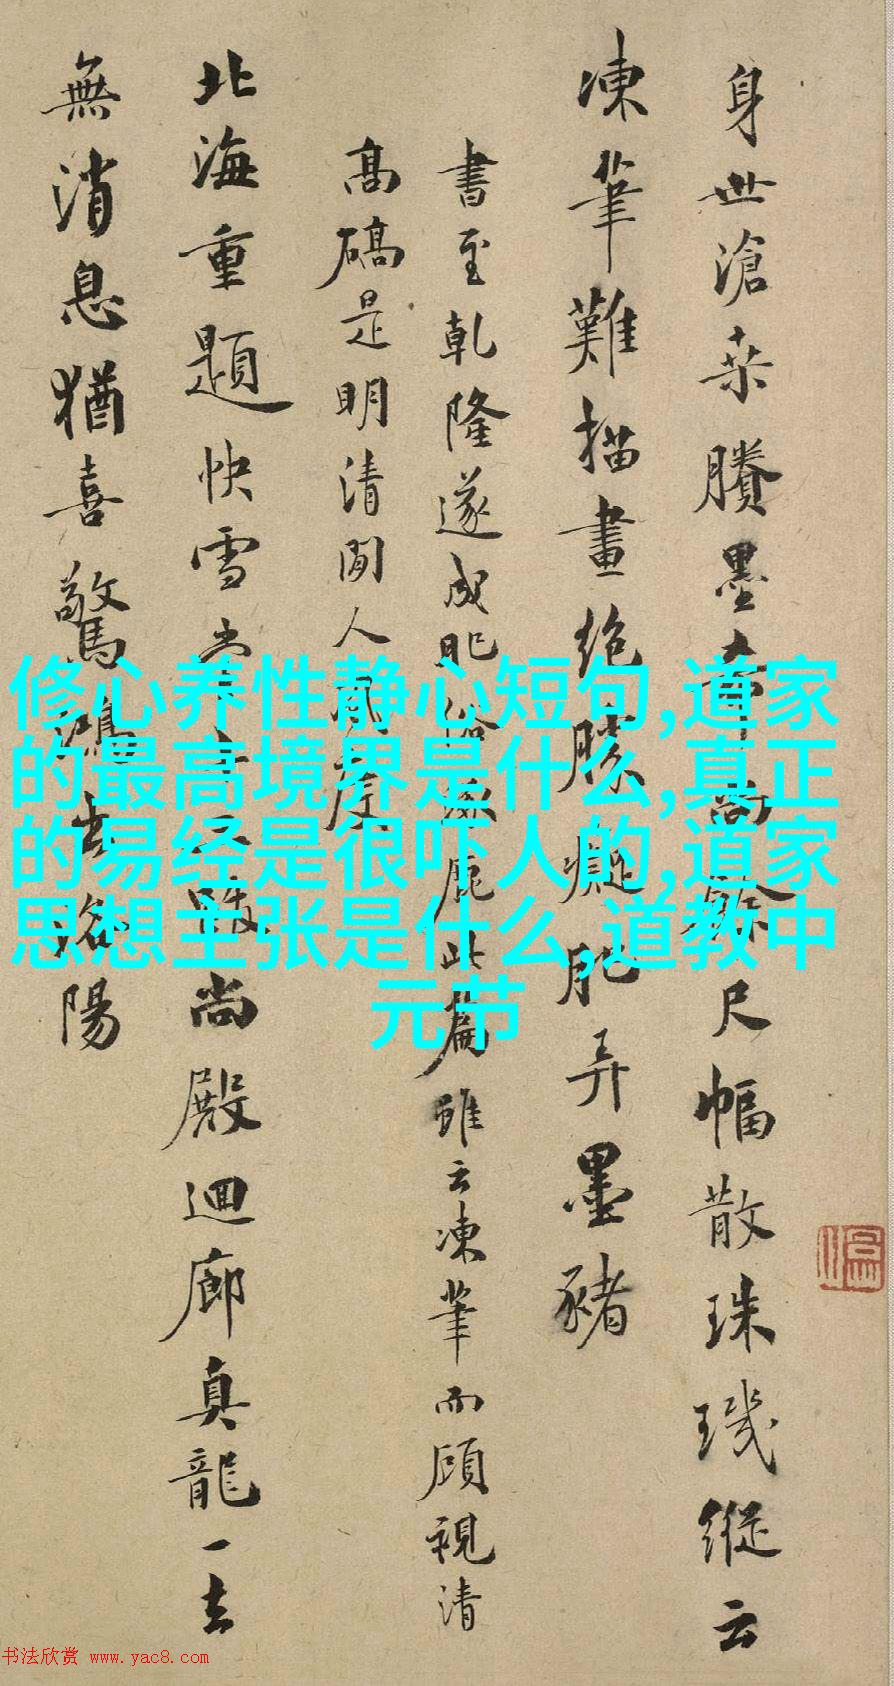 身世滄桑賸墨尚餘尺幅散珠璣縱云
凍筆難描畫絶勝癡肥弄墨豬
書至乾隆遂成肥俗此篇雖云凍筆而顧視清
高碻是明清間人風度
北海重題快雪尚殿迴廊真龍一去
無消息猶喜驚鴻洛陽
修心养性静心短句,道家
的最高境界是什么,真正
的易经是很吓人的,道家
思想主张是什么,道教中
元节
书法欣赏 www.yac8.com